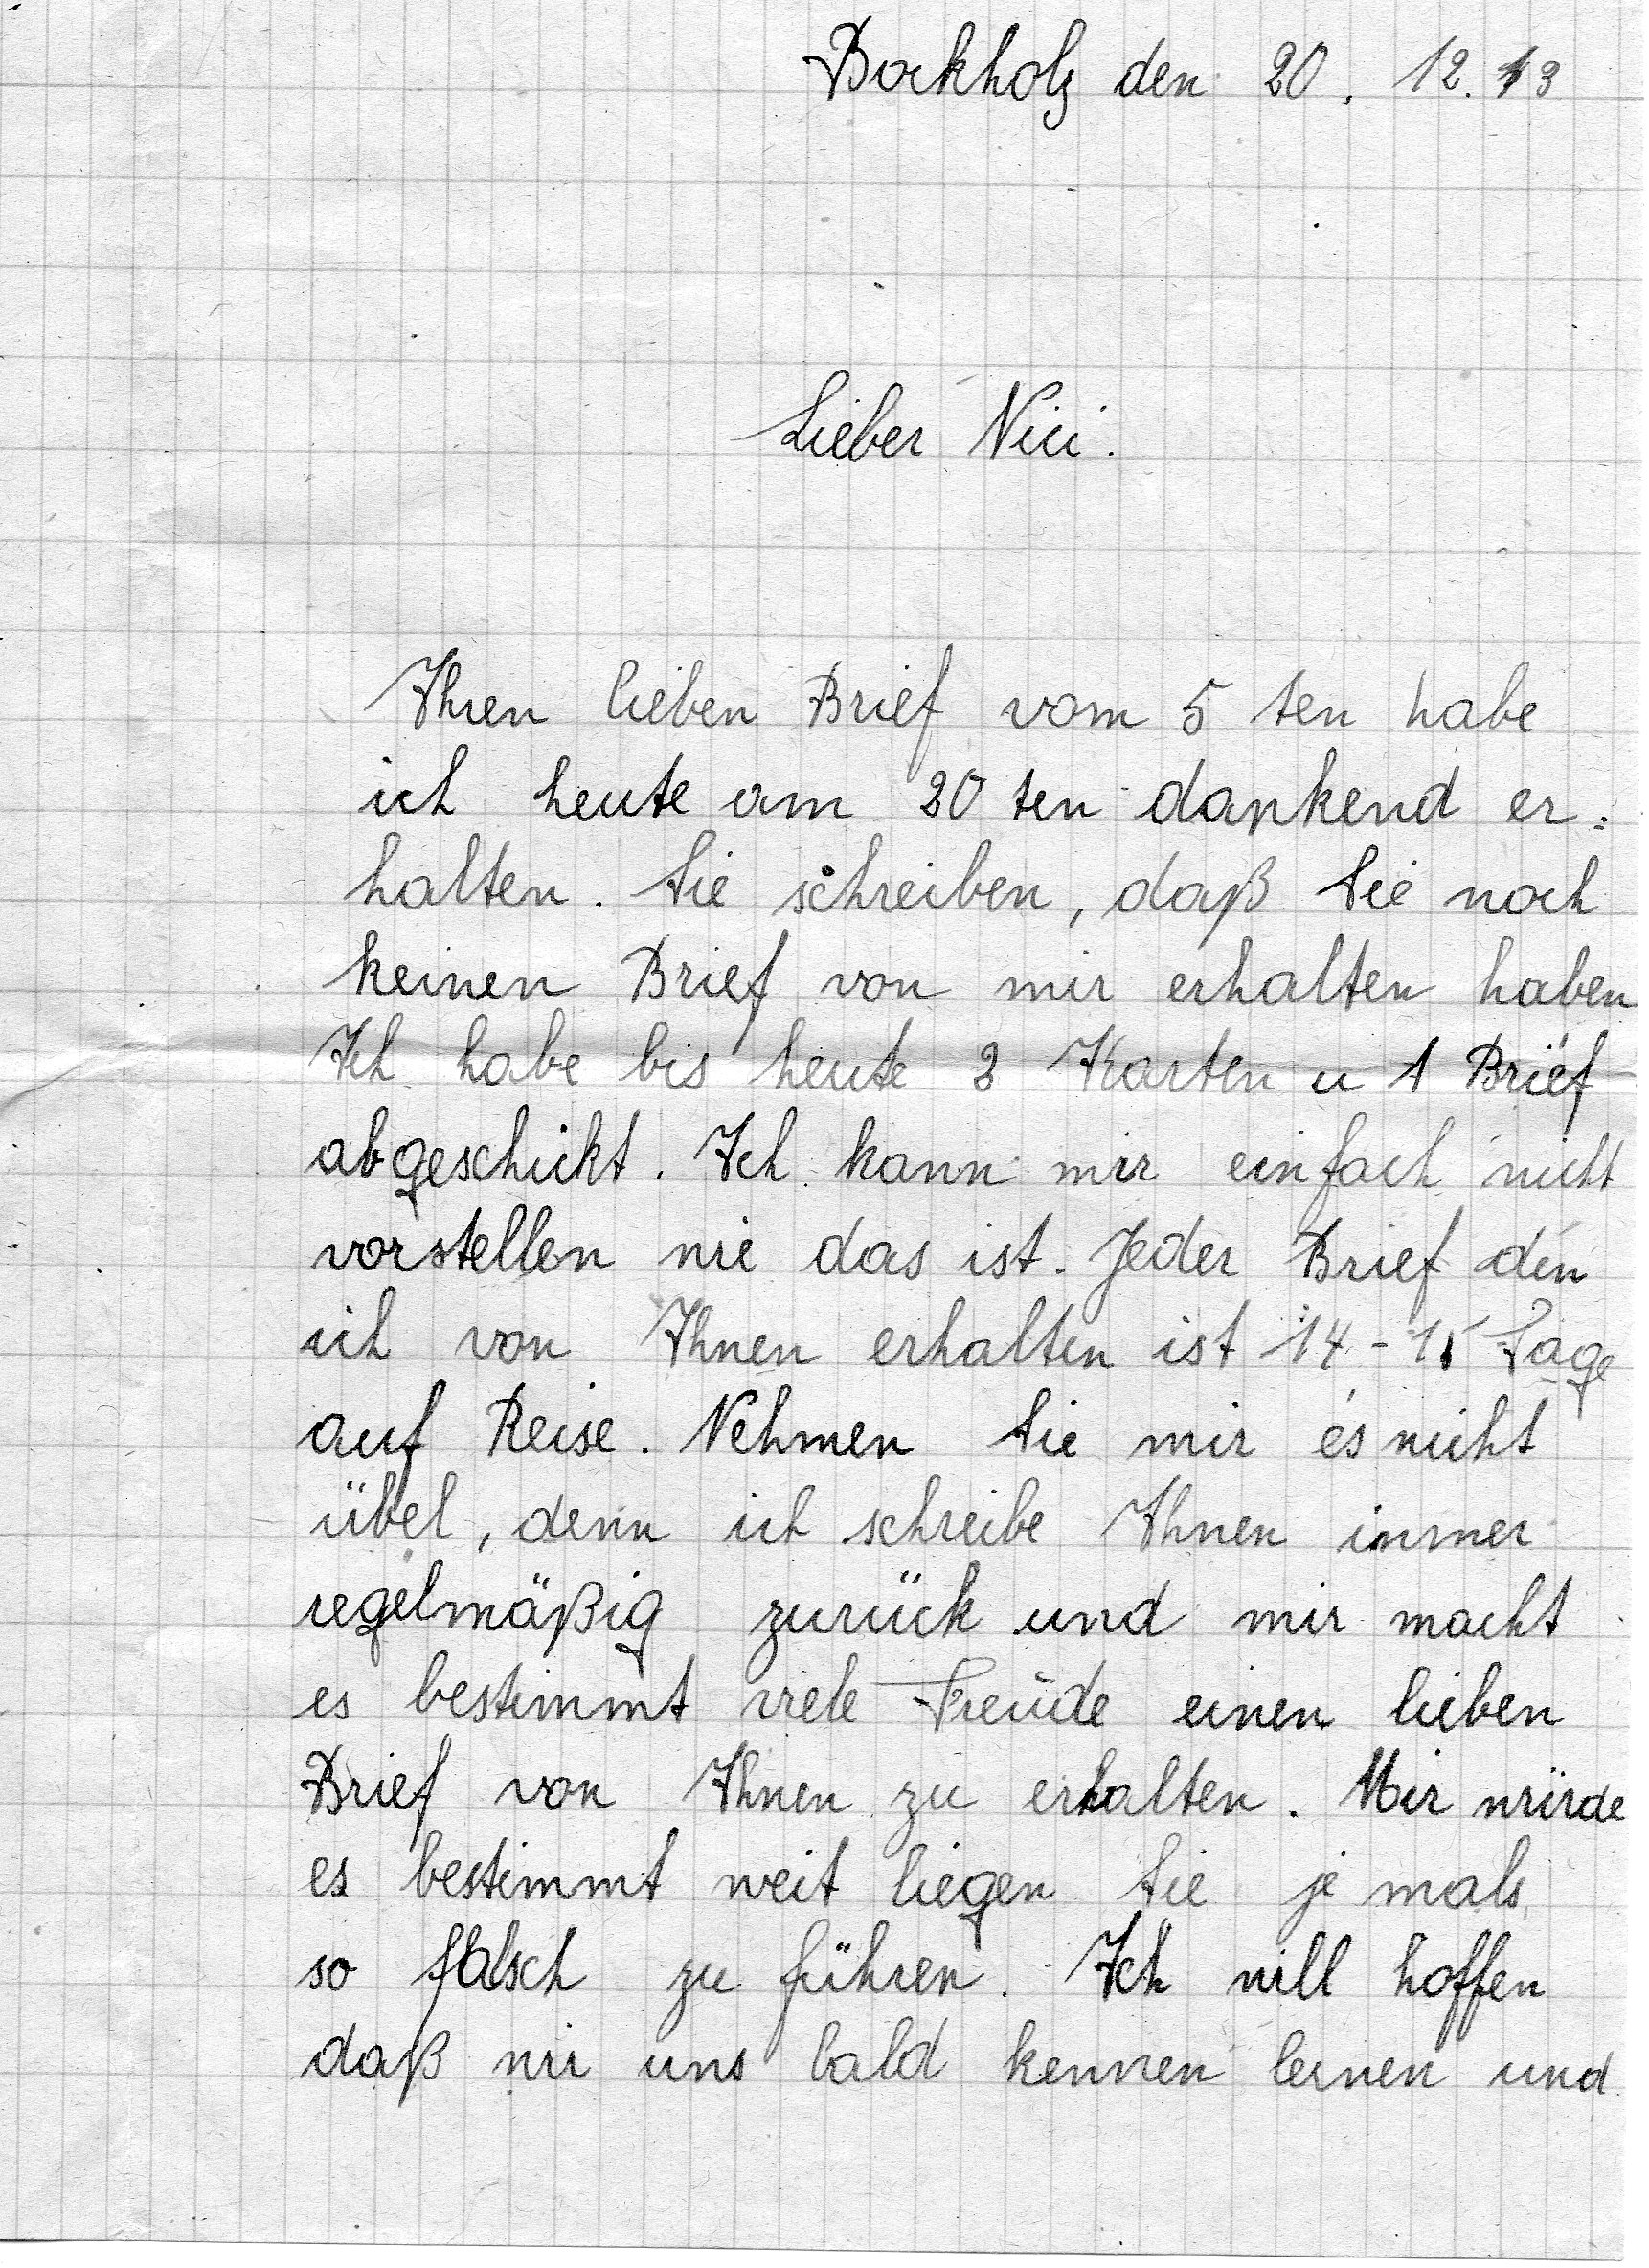 Bockholz den 20. 12. 43
Lieber Nici.
Ihren lieben Brief vom 5 ten habe
ich heute am 20 ten dankend er=
halten. Sie schreiben, daß Sie noch
keinen Brief von mir erhalten haben
Ich habe bis heute 2 Karten u 1 Brief
abgeschickt. Ich kann mir einfach nicht
vorstellen wie das ist. Jeder Brief den
ich von Ihnen erhalten ist 14 - 15 Tage
auf Reise. Nehmen Sie mir es nicht
übel, denn ich schreibe Ihnen immer
regelmäßig zurück und mir macht
es bestimmt viele Freude einen lieben
Brief von Ihnen zu erhalten. Mir würde
es bestimmt weit liegen Sie je mals
so falsch zu führen. Ich will hoffen
daß wir uns bald kennen lernen und